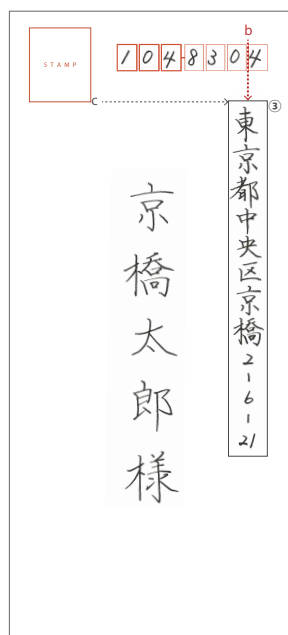 STAMP
104-8304
b
c
③
東京都中央区京橋2-6-21
京橋太郎様